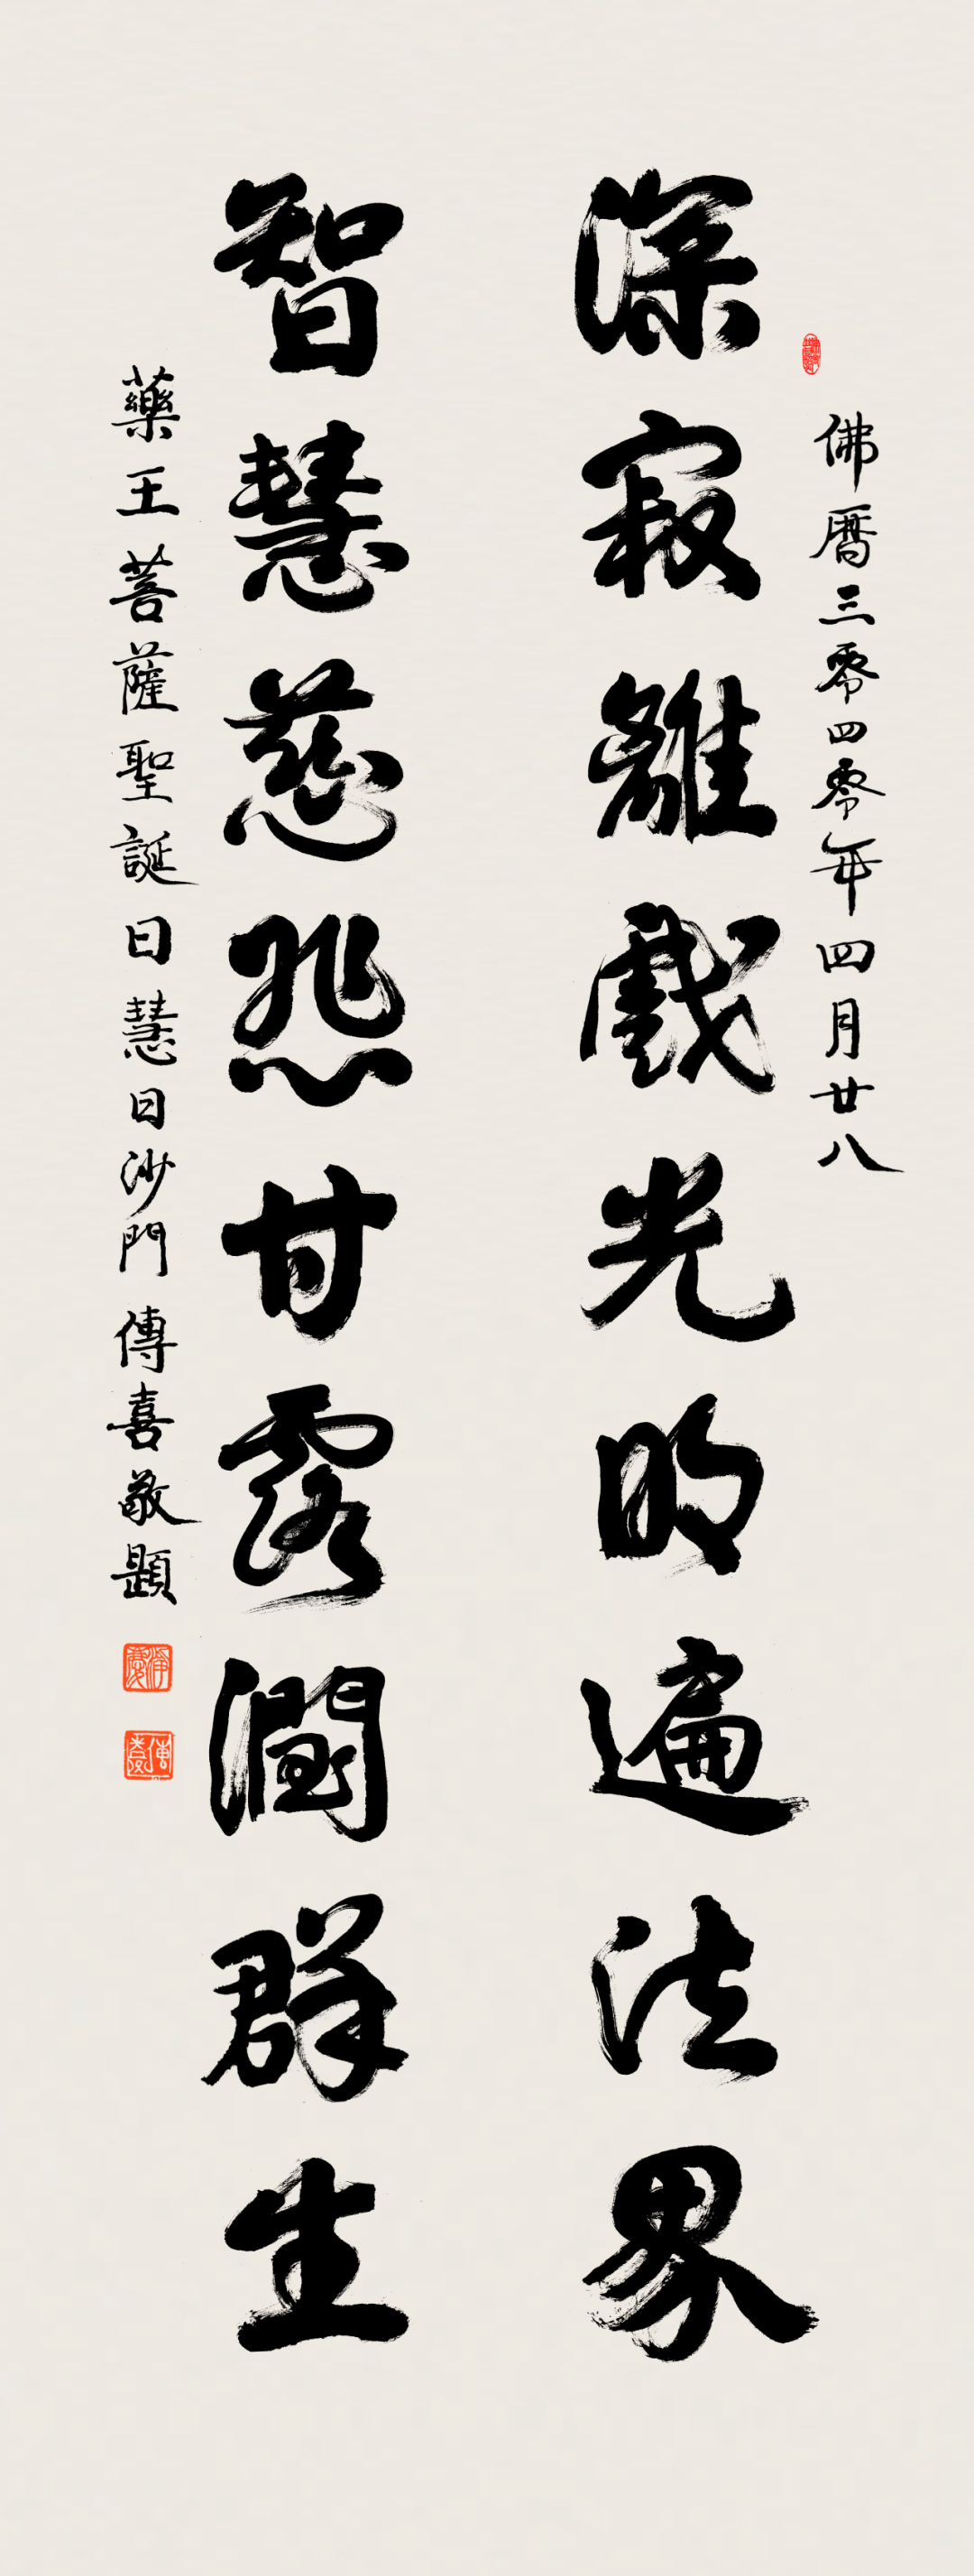 佛曆三零四零年四月廿八
深寂離戲光明遍法界
智慧慈悲甘露潤群生
藥王菩薩聖誕日慧日沙門傳喜敬題
傳喜